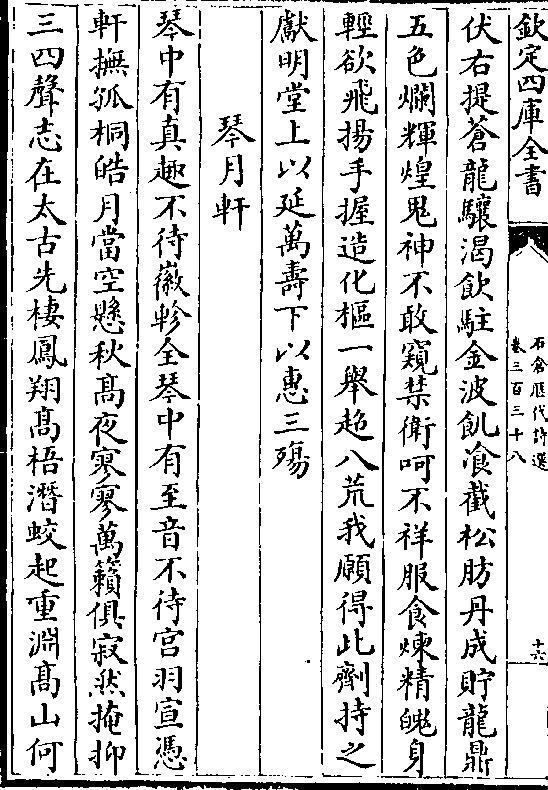 欽定四庫全書
石倉歷代詩選
卷三百三十八
十六
伏右提蒼龍驤渴飲駐金波飢飡截松肪丹成貯龍鼎
五色爛輝煌鬼神不敢窺禁衛呵不祥服食煉精魄身
輕欲飛揚手握造化樞一舉超八荒我願得此劑持之
獻明堂上以延萬壽下以惠三殤
琴月軒
琴中有真趣不待徽軫全琴中有至音不待宫羽宣憑
軒撫孤桐皓月當空懸秋髙夜寥寥萬籟俱寂然掩抑
三四聲志在太古先棲鳳翔髙梧潛蛟起重淵髙山何